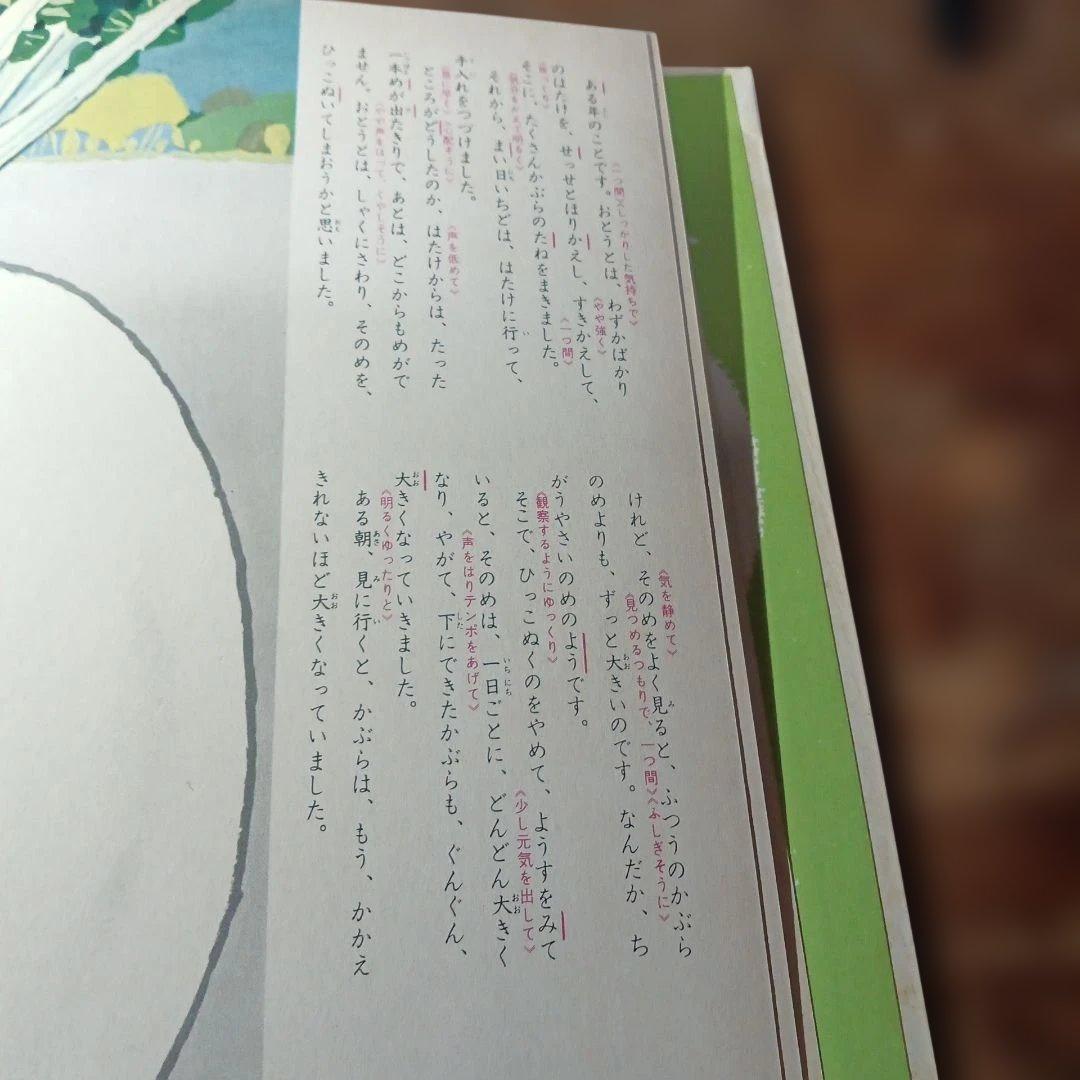 《一つ間》《しっかりした気持ちで》
ある年のことです。おとうとは、わずかばかり
《やや強く》
のはたけを、せっせとほりかえし、すきかえして、
《一つ間》
そこに、たくさんかぶらのたねをまきました。
それから、まい日いちどは、はたけに行って、
手入れをつづけました。
《声を低めて》
ところがどうしたのか、はたけからは、たった
一本めが出たきりで、あとは、どこからもめがで
《やや声をはって、くやしそうに》
ません。おとうとは、しゃくにさわり、そのめを、
ひっこぬいてしまおうかと思いました。
《気を静めて》
《見つめるつもりで、一つ間》《ふしぎそうに》
けれど、そのめをよく見ると、ふつうのかぶら
のめよりも、ずっと大きいのです。なんだか、ち
がうやさいのめのようです。
《観察するようにゆっくり》
《少し元気を出して》
そこで、ひっこぬくのをやめて、ようすをみて
いると、そのめは、一日ごとに、どんどん大きく
《声をはりテンポをあげて》
なり、やがて、下にできたかぶらも、ぐんぐん、
大きくなっていきました。
《明るくゆったりと》
ある朝、見に行くと、かぶらは、もう、かかえ
きれないほど大きくなっていました。